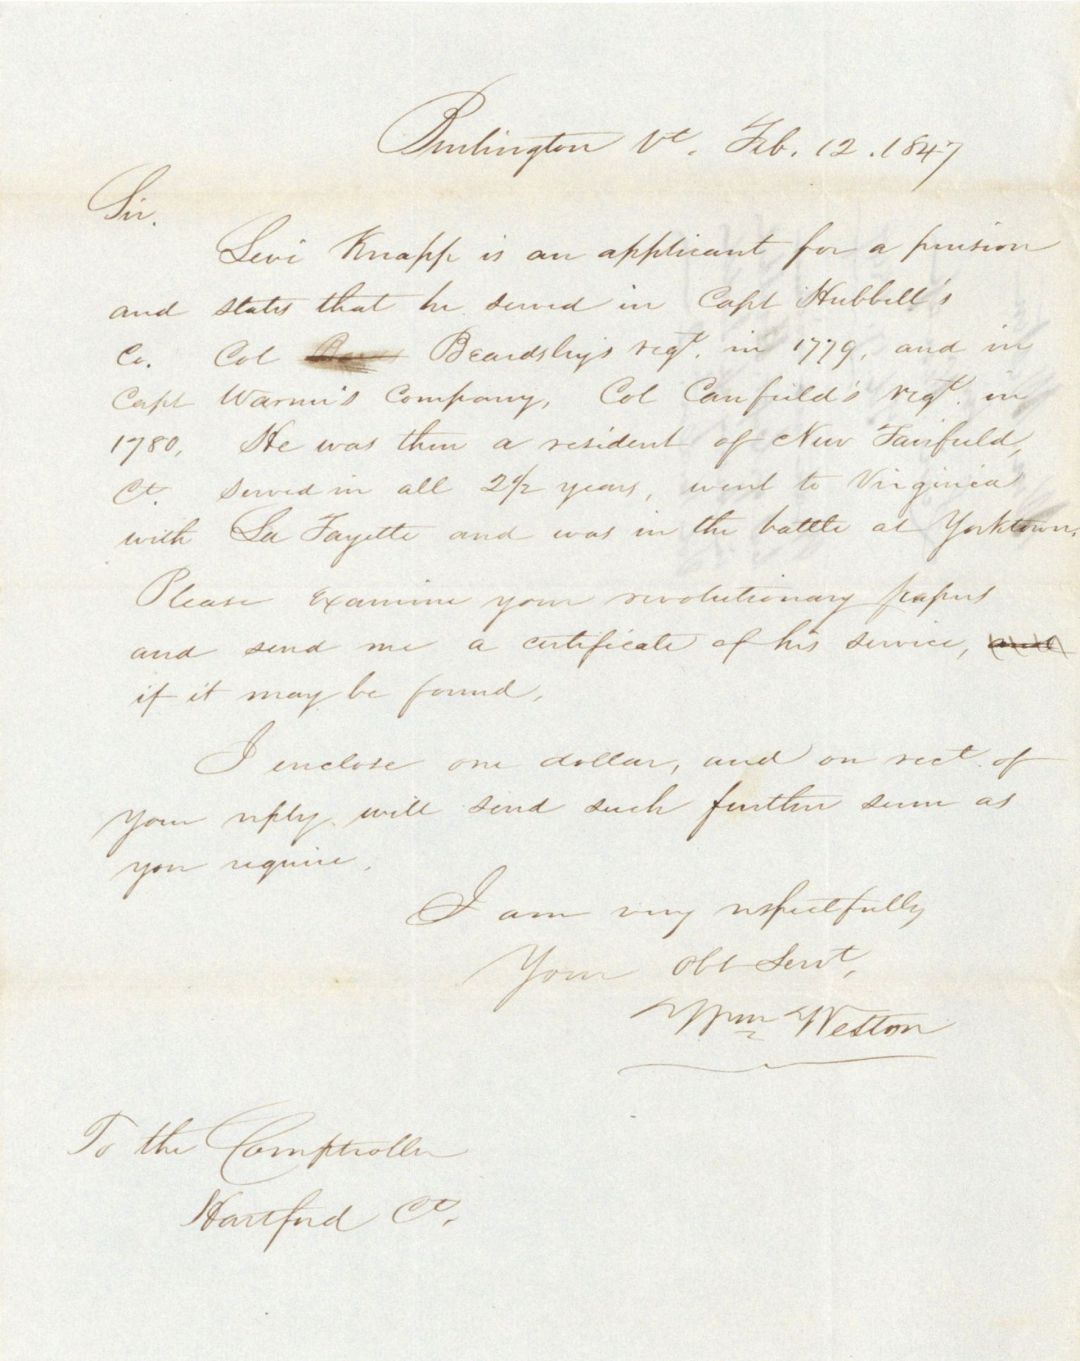 Burlington Vt. Feb. 12. 1847
Sir.
Levi Knapp is an applicant for a pension
and states that he served in Capt Hubbell's
Co. Col Beardsley's regt. in 1779, and in
Capt Company, Col Canfield's regt. in
1780, He was then a resident of New Fairfield,
Ct. Served in all 2 1/2 years, went to Virginia
with La Fayette and was in the battle at Yorktown.
Please examine your revolutionary papers
and send me a certificate of his service, and
if it may be found.
I enclose one dollar, and on rect. of
your reply will send such further sum as
you require.
I am very respectfully
Your Obt Servt,
Wm Weston
To the Comptroller
Hartford Ct.